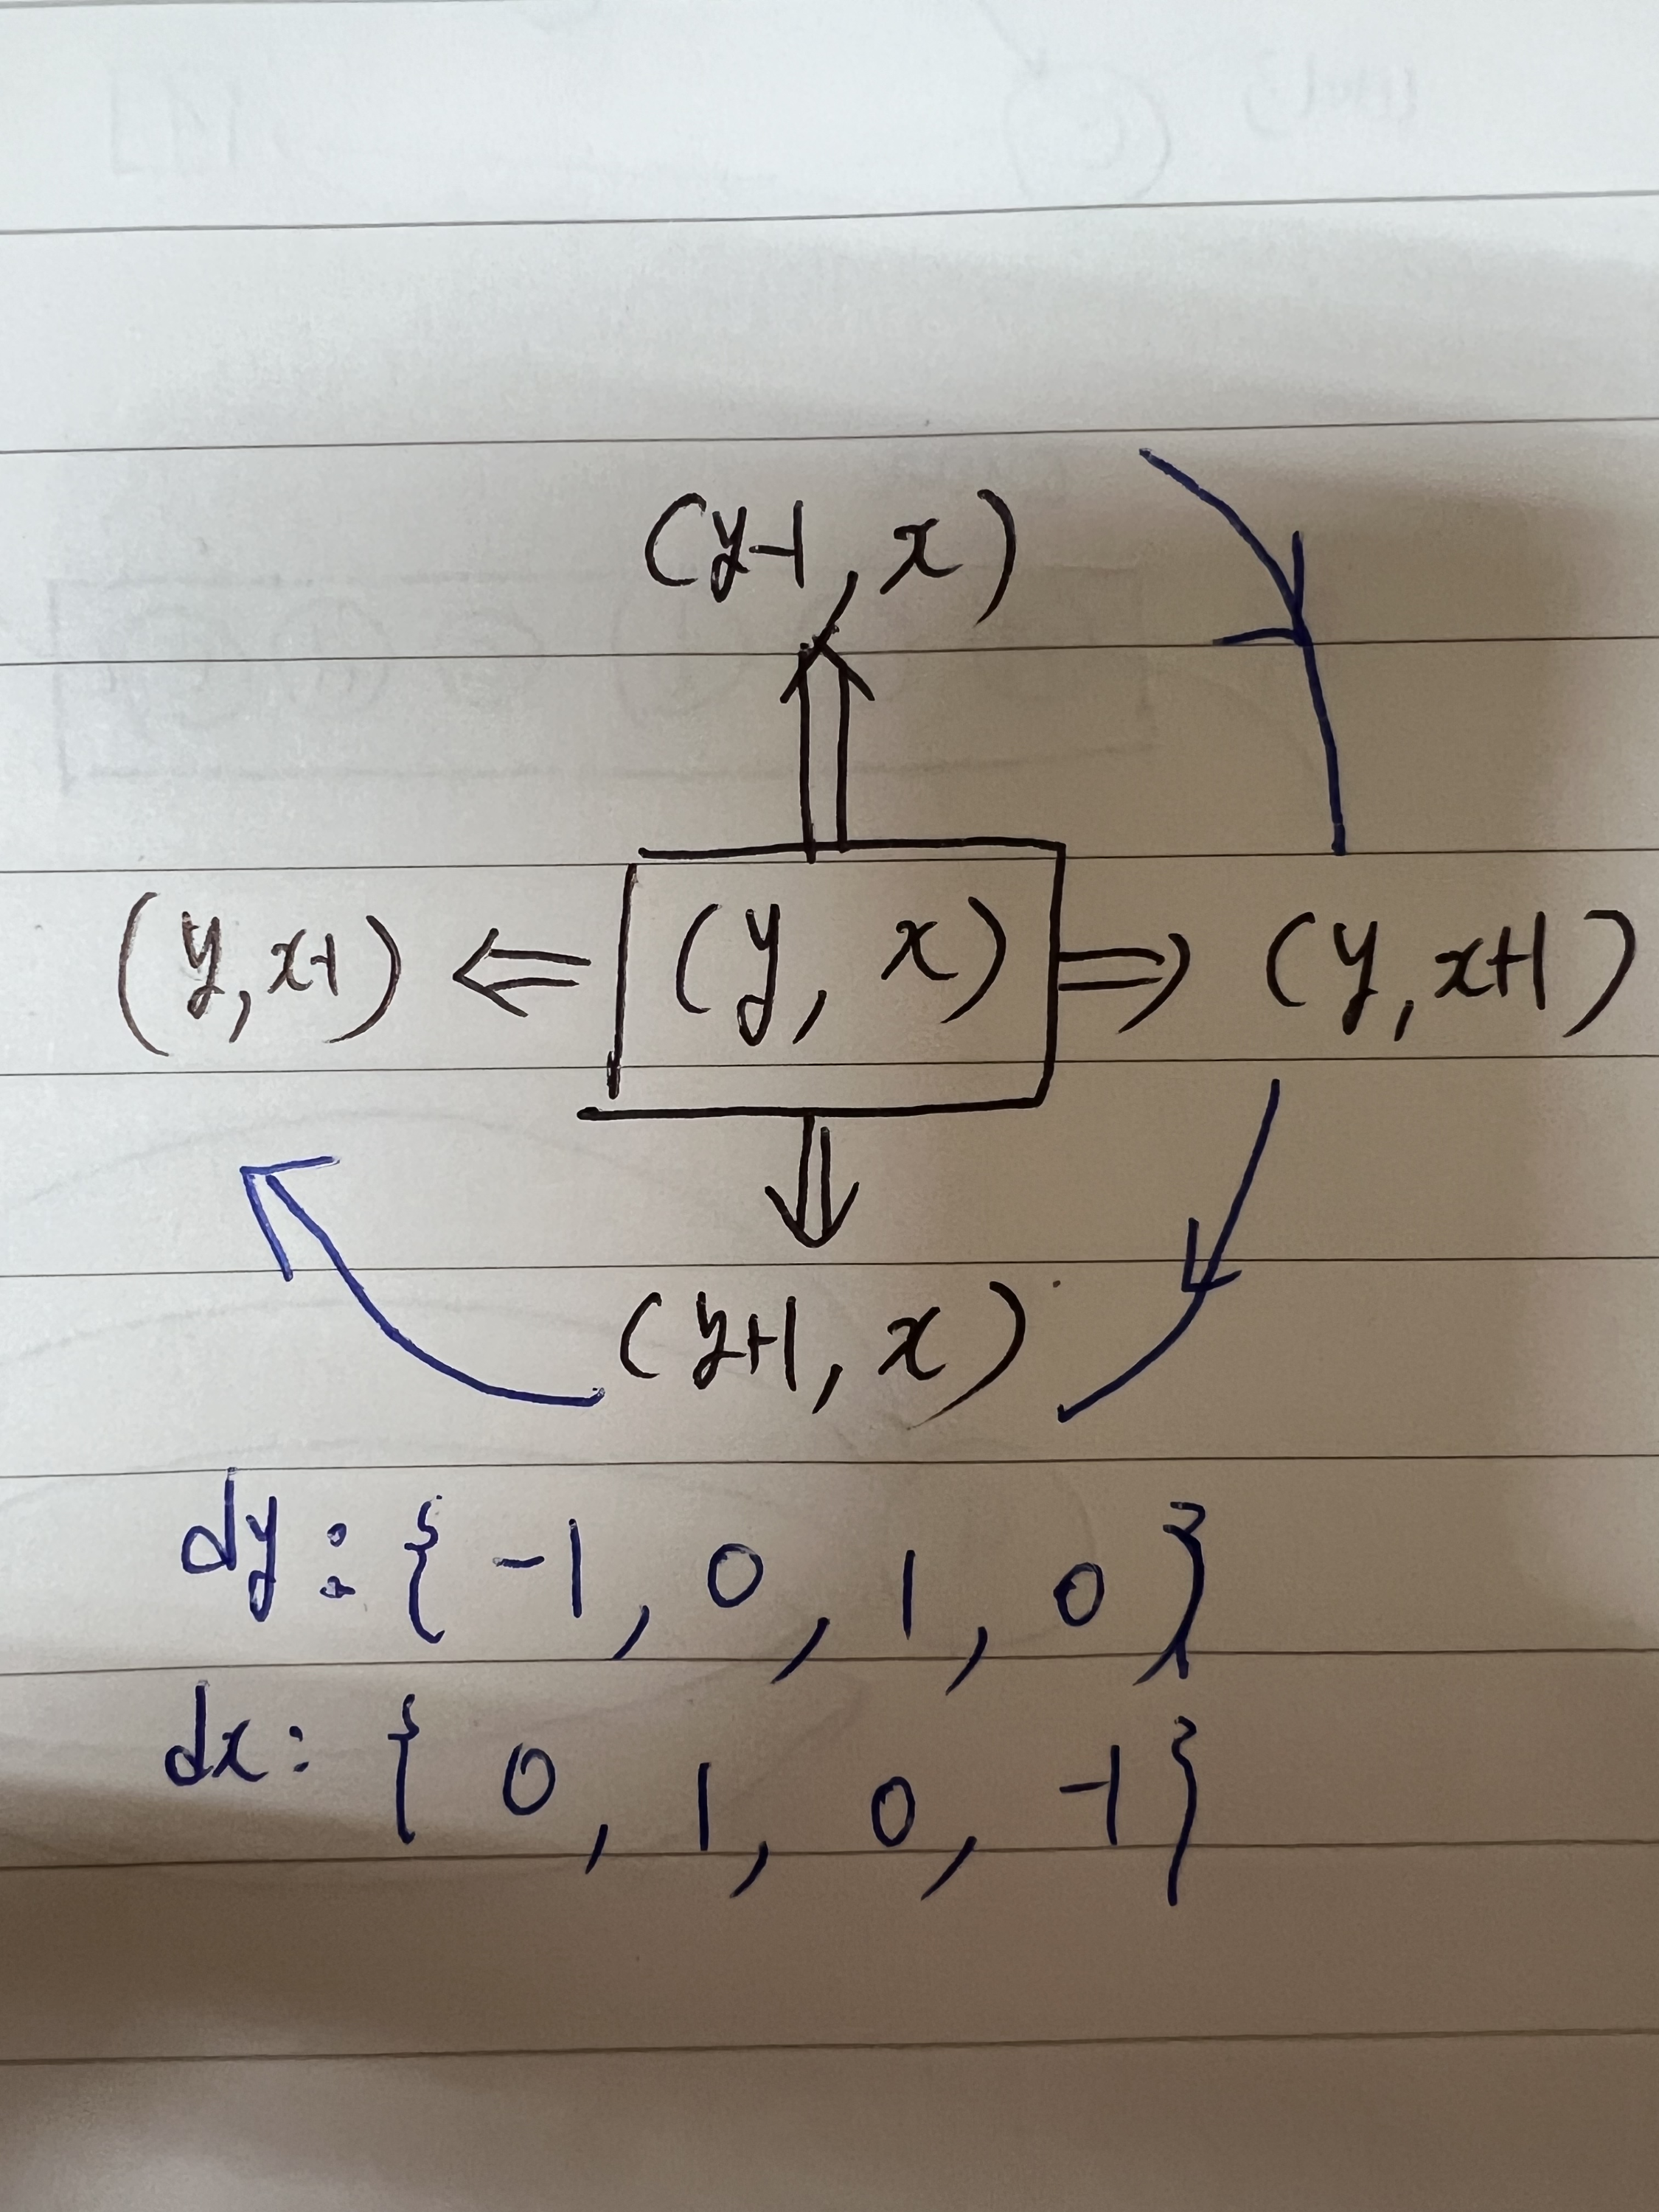 (y-1, x)
(y, x-1) ⇐ (y, x) ⇒ (y, x+1)
(y+1, x)
dy: { -1, 0, 1, 0 }
dx: { 0, 1, 0, -1 }